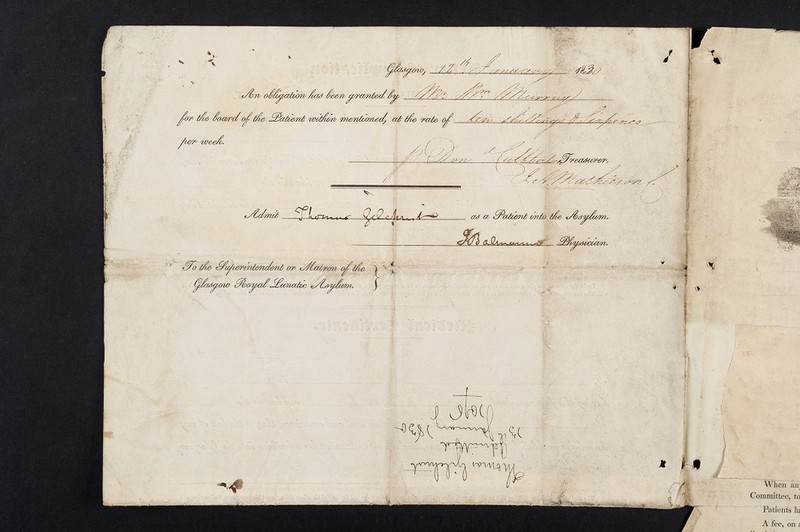 Glasgow, 12th January 1830
An obligation has been granted by Mr. Wm. Murray
for the board of the Patient within mentioned, at the rate of ten shillings & Sixpence
per week.
Don Cuthbertson Treasurer.
Mathieson
Admit Thomas Gilchrist as a Patient into the Asylum.
J Balmanno Physician.
To the Superintendent or Matron of the
Glasgow Royal Lunatic Asylum.
Thomas Gilchrist
Admitted
13th January 1830
When any
Committee, to
Patients ha
A fee, on